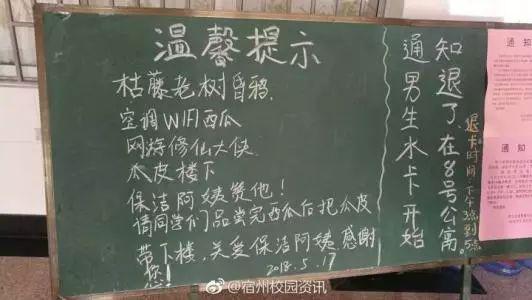 温馨提示
枯藤老树昏鸦.
空调WIFI西瓜
网游修仙大侠.
瓜皮楼下
保洁阿姨赞他!
请同学们品尝完西瓜后把瓜皮
带下楼,关爱保洁阿姨,感谢
您!
2018.5.17
通知
男生水卡开始
退了,在8号公寓.
退卡时间:下午3点到5点
通知
通知
@宿州校园资讯